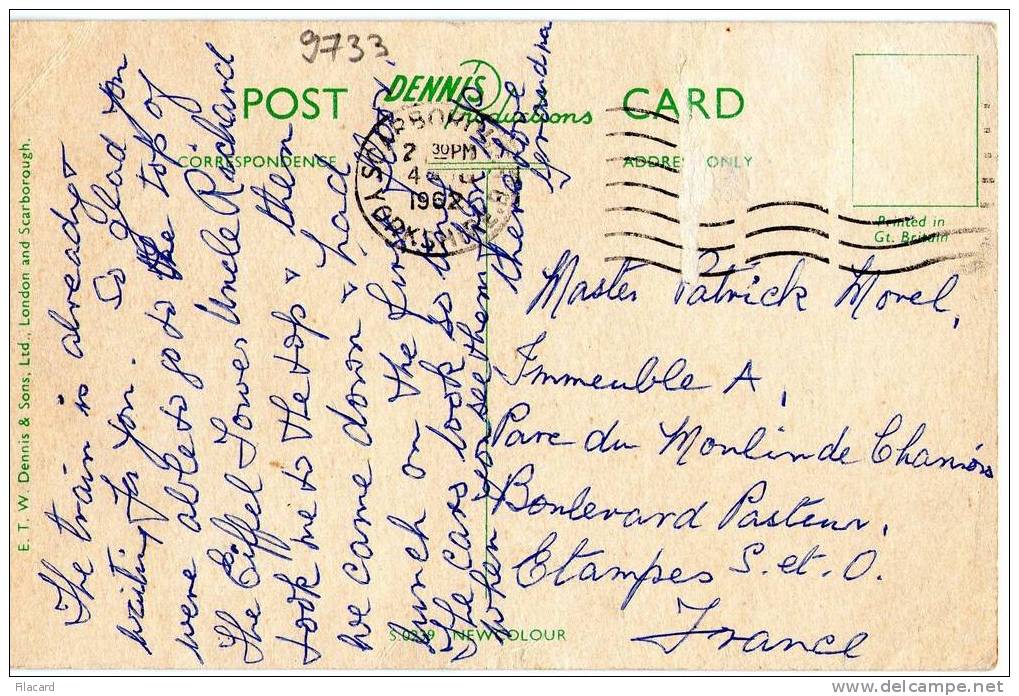 9733
POST
DENNIS
Productions
CARD
CORRESPONDENCE
ADDRESS ONLY
SCARBOROUGH
2 30PM
4
1962
YORKSHIRE
Printed in
Gt. Britain
The train is already
waiting for you. So glad you
were able to go to the top of
the Eiffel Tower Uncle Richard
took me to the top & then
we came down & had
lunch on the first floor,
The cars look so tiny
when you see them from up
there love
Grandma
Master Patrick Morel,
Immeuble A,
Parc du Moulin de Chamois
Boulevard Pasteur,
Etampes S. et. O.
France
E. T. W. Dennis & Sons, Ltd., London and Scarborough.
S.0239 NEWCOLOUR
Filacard
www.delcampe.net